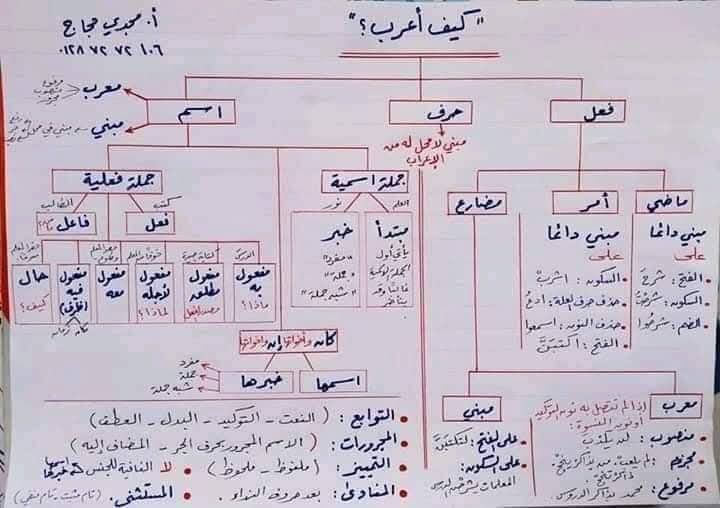 أ. مجدي حجاج
٠١٢٨ ٧٢ ٧٢ ١٠٦
"كيف أعرب؟"
فعل
حرف
اسم
معرب
مرفوع
منصوب
مجرور
مبني
مبني في محل
مبني لا محل له من
الإعراب
ماضي
أمر
مضارع
مبني دائما
على
الفتح: شرحَ
السكون: شرحْتُ
الضم: شرحُوا
مبني دائما
على
السكون: اشربْ
حذف حرف العلة: ادعُ
حذف النون: اسمعوا
الفتح: اكتبَنَّ
معرب
إذا لم تتصل به نون التوكيد
أو نون النسوة
منصوب: لن يكذبَ
مجزوم: لم يلعبْ
مرفوع: محمد يذاكرُ الدروس
مبني
على الفتح: لتكتبَنَّ
على السكون:
المعلمات يشرحْنَ الدرس
جملة اسمية
العلم
نور
مبتدأ
يأتي أول
الجملة الاسمية
غالبا وقد
يتأخر
خبر
"مفرد"
"جملة"
"شبه جملة"
جملة فعلية
كتب
الطالب
فعل
فاعل
الدرسَ
مفعول
به
ماذا؟
كتابة
مفعول
مطلق
مصدر الفعل
مفعول
لأجله
لماذا؟
مفعول
معه
مفعول
فيه
(ظرف)
مكان زمان
حال
كيف؟
كان وأخواتها إن وأخواتها
اسمها
خبرها
مفرد
جملة
شبه جملة
التوابع: (النعت - التوكيد - البدل - العطف)
المجرورات: (الاسم المجرور بحرف الجر - المضاف إليه)
التمييز: (ملفوظ - ملحوظ)
لا النافية للجنس اسمها خبرها
المنادى: بعد حروف النداء.
المستثنى: (تام مثبت - تام منفي)